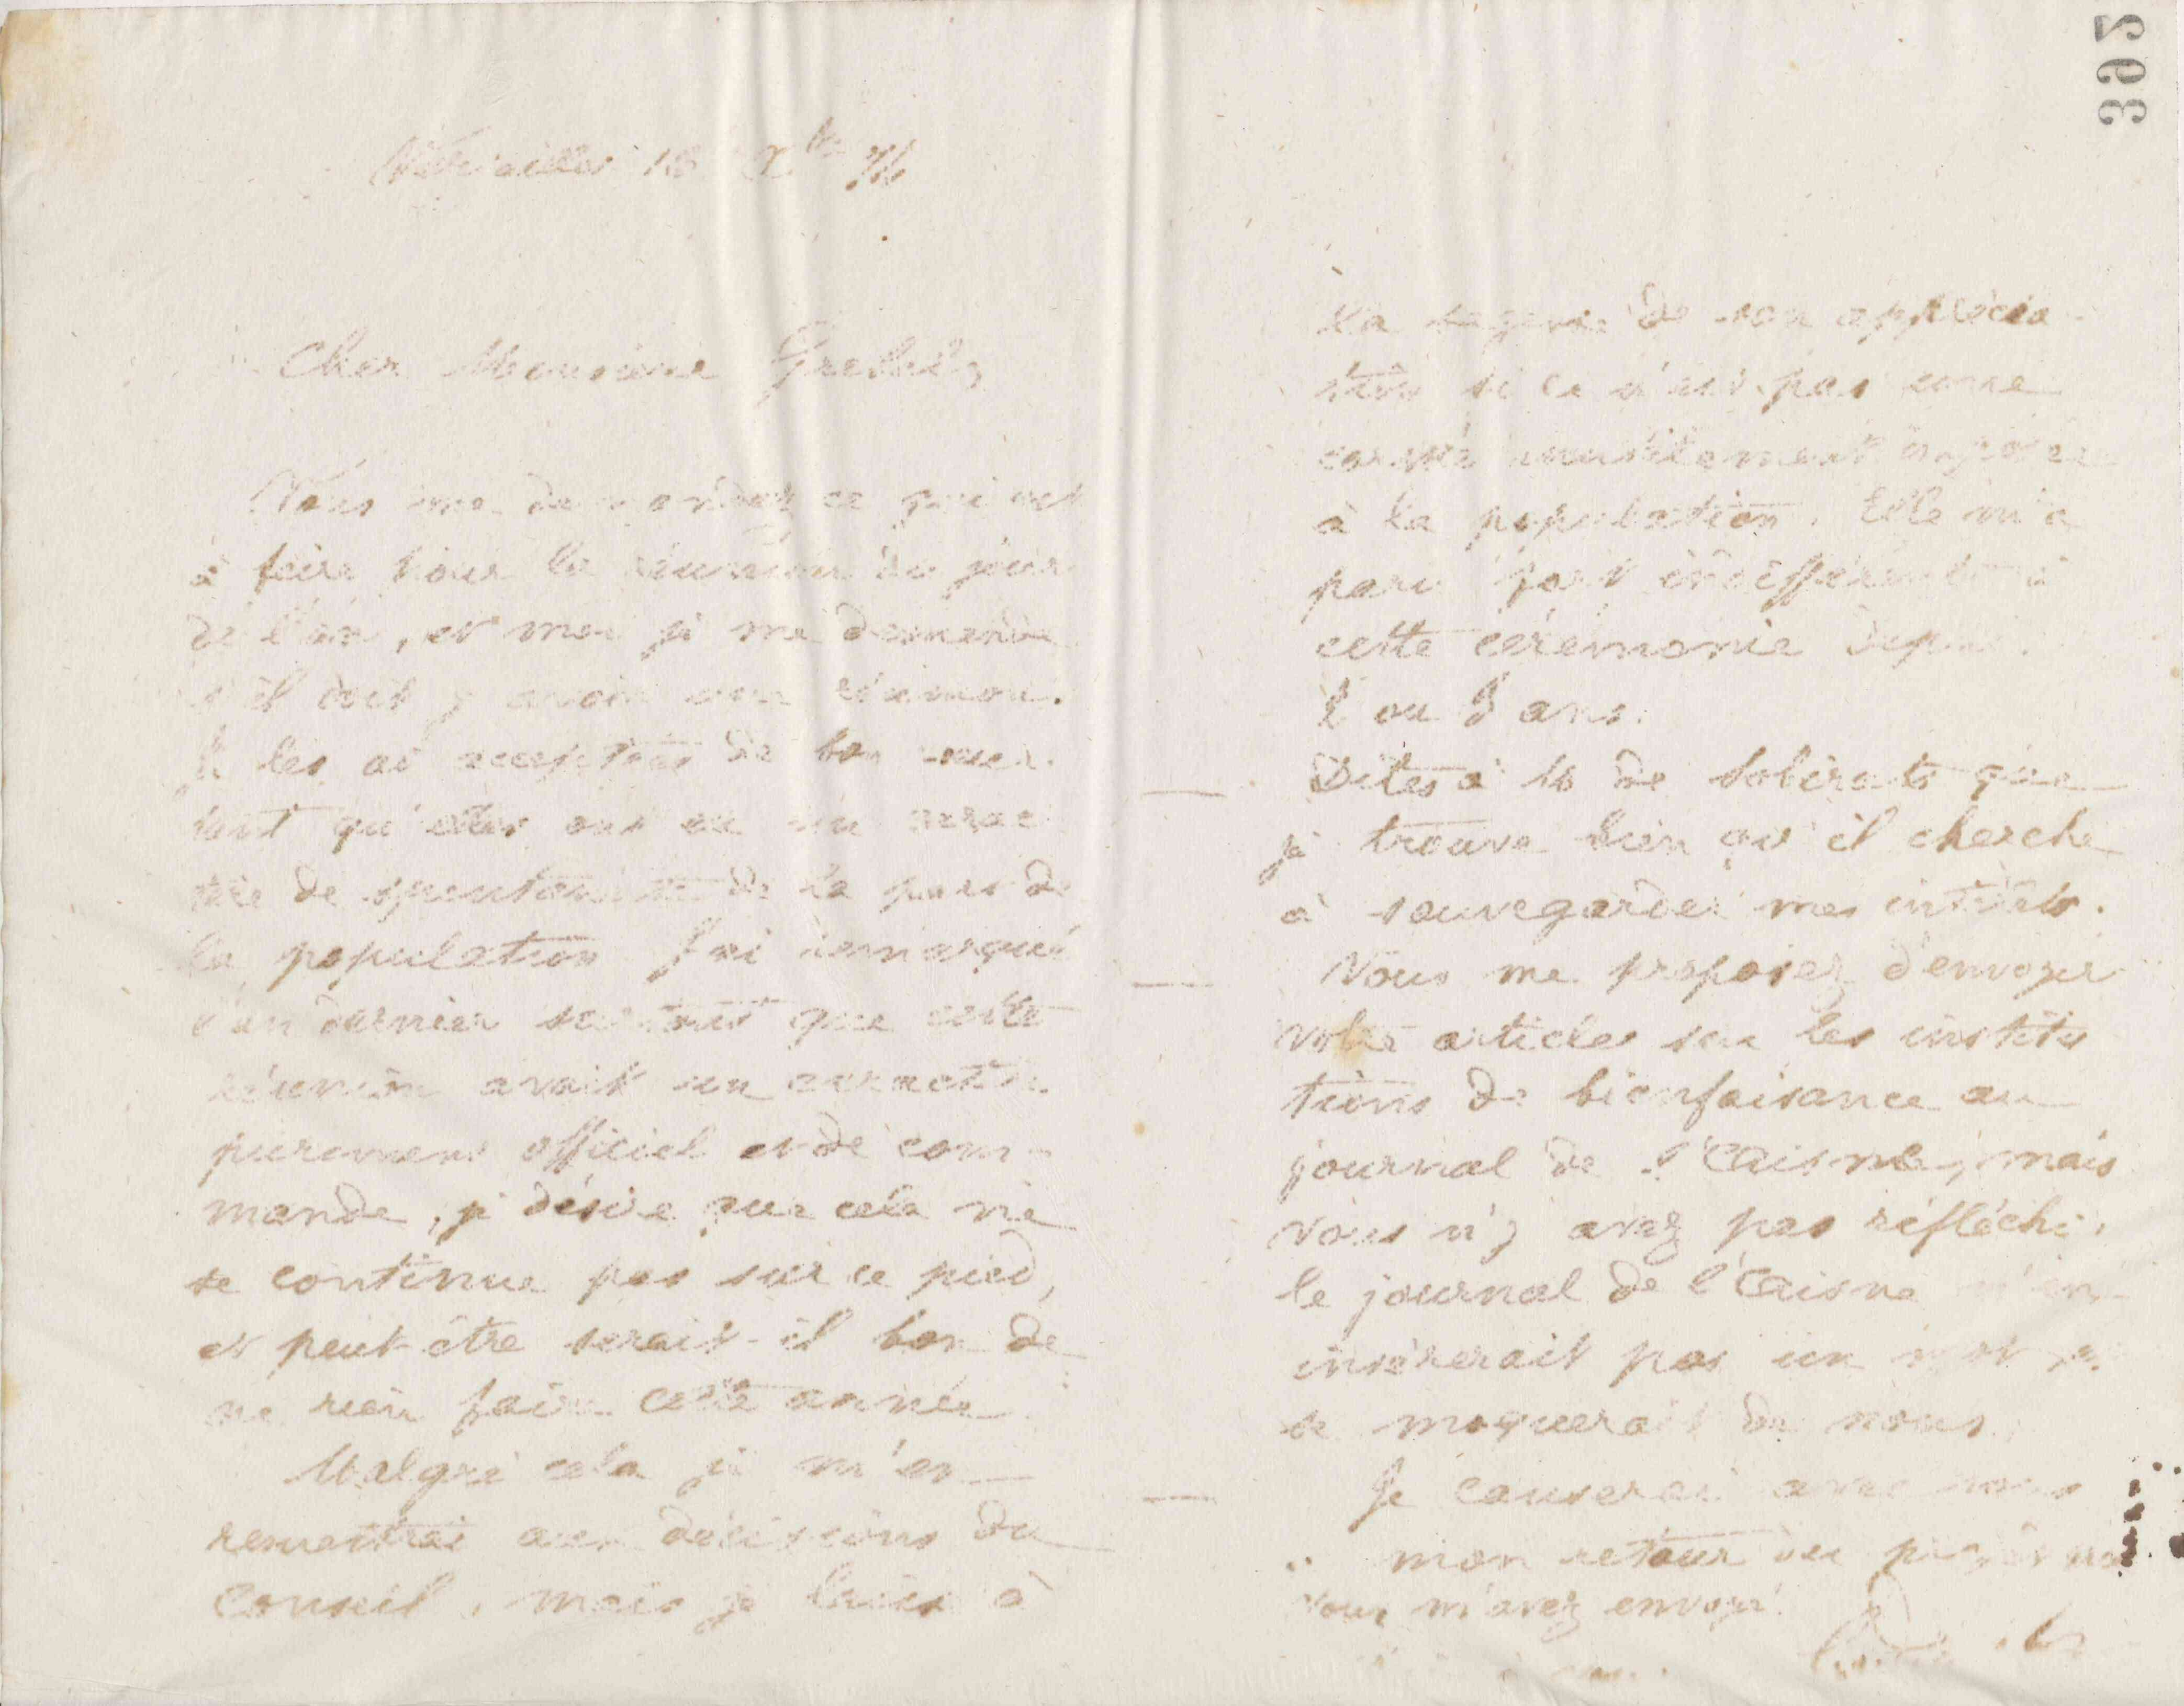 Versailles 16 Xbre 74
Cher Monsieur Grebel,
Vous me demandez ce qui est
à faire pour la réunion du jour
de l'an, et moi je me demande
s'il doit y avoir une réunion.
Je les ai acceptées de bon coeur
tant qu'elles ont eu un carac
tère de spontanéité de la part de
la population J'ai remarqué
l'an dernier surtout que cette
réunion avait un caractère
purement officiel et de com-
mande, je désire que cela ne
se continue pas sur ce pied,
et peut-être serait-il bon de
ne rien faire cette année
Malgré cela je m'en
remettrai aux décisions du
conseil, mais je laisse à
la sagesse de son apprécia-
tion si ce n'est pas une
corvée inutilement imposée
à la population. Elle m'a
paru fort indifférente à
cette cérémonie depuis
2 ou 3 ans.
Dites à M de que
je trouve bien qu'il cherche
à sauvegarder mes intérêts.
Vous me proposez d'envoyer
votre articles sur les institu
tions de bienfaisance au
journal de l'Aisne, mais
vous n'y avez pas réfléchi,
le journal de l'Aisne n'en
insérerait pas un mot et
se moquerait de nous.
Je causerai avec vous
à mon retour du projet que
vous m'avez envoyé.
362